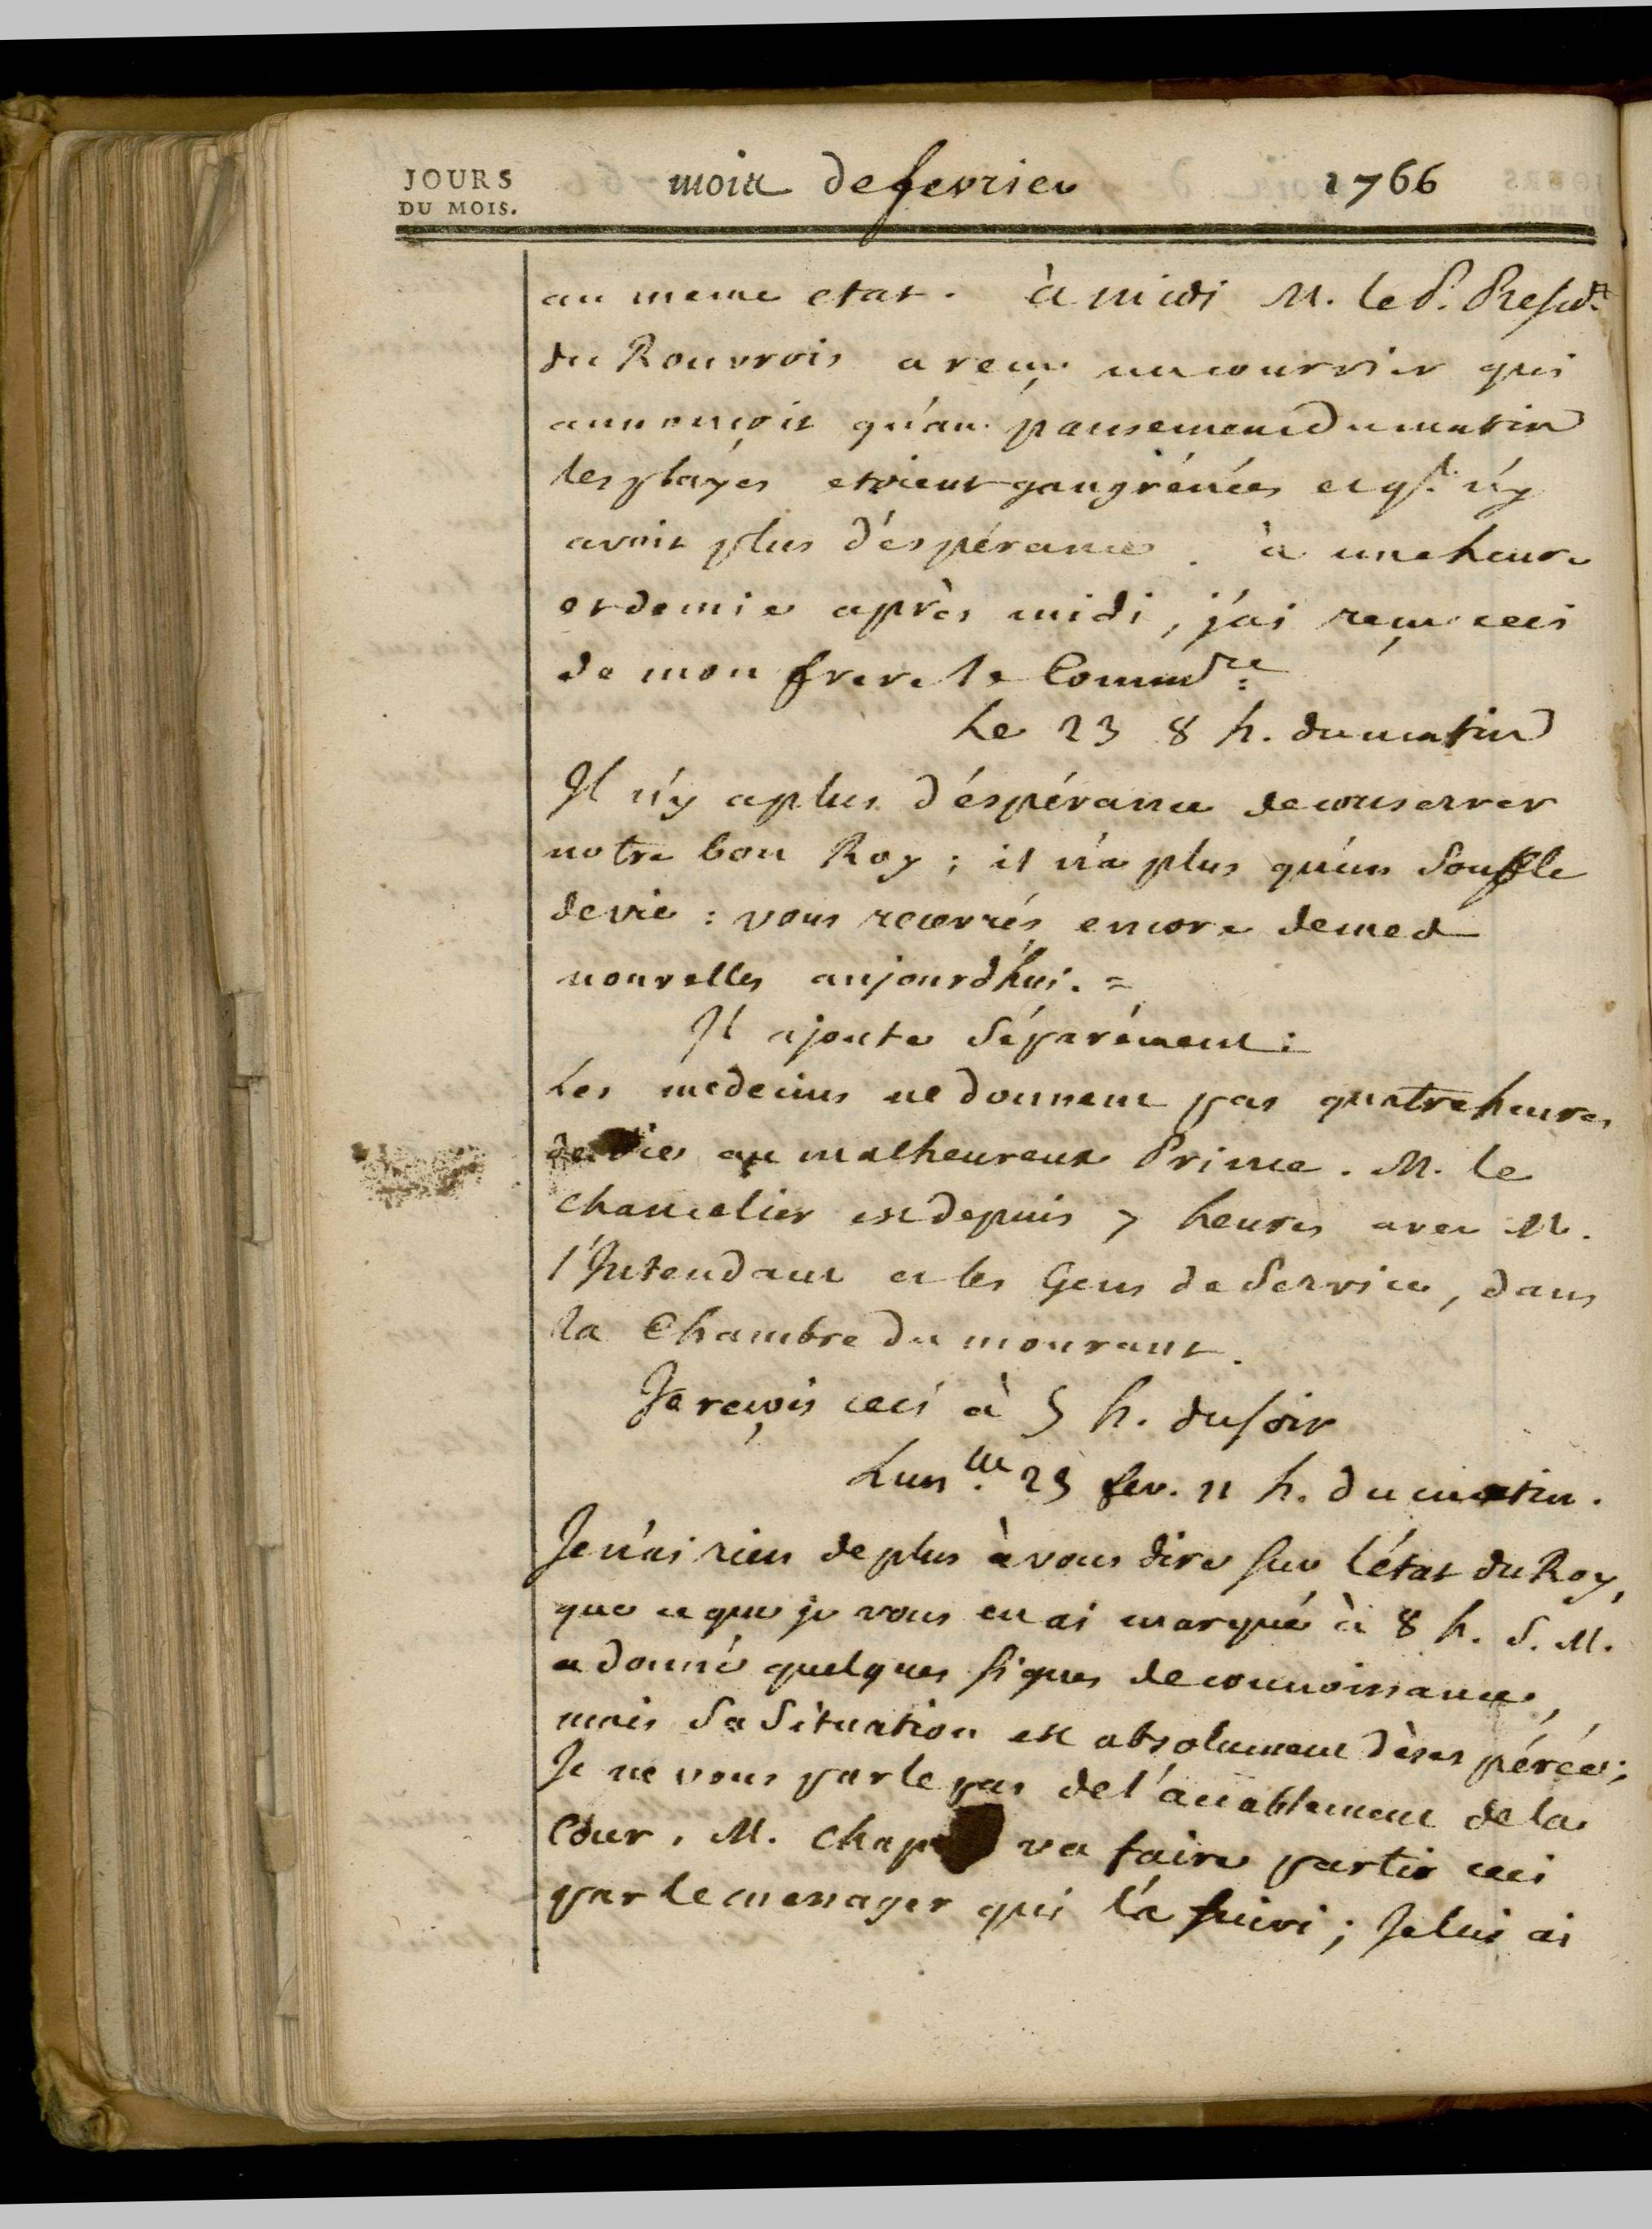 JOURS
DU MOIS.
mois de fevrier 1766
au meme etat. à midi M. le P. Presid.t
du Rouvrois a reçu un courrier qui
annonçoit qu'au pansement du matin
les playes etoient gangrénées et q.l n'y
avoit plus d'éspérance. à une heure
et demie après midi, j'ai reçu ceci
de mon frere le Comm.re
Le 23 8 h. du matin
Il n'y a plus d'éspérance de conserver
notre bon Roy; il n'a plus qu'un Souffle
de vie: vous recevrés encore de mes
nouvelles aujourd'hui. =
Il ajoute Séparément:
Les medecins ne donnent pas quatre heures
de vie au malheureux Prince. M. le
Chancelier est depuis 7 heures avec M.
l'Intendant et les Gens de Service, dans
la Chambre du mourant.
Je reçois ceci à 5 h. du soir
Lun.lle 23 fev. 11 h. du matin.
Je n'ai rien de plus à vous dire sur l'état du Roy,
que ce que je vous en ai marqué à 8 h. S. M.
a donné quelques signes de connoissance,
mais Sa Situation est absolument dèsespérée;
Je ne vous parle pas de l'accablement de la
Cour. M. va faire partir ceci
par le messager qui l'a suivi; Je lui ai